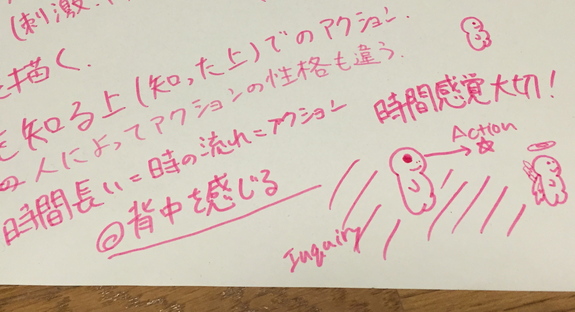 (刺激
を描く.
を知る上(知った上)でのアクション.
人によってアクションの性格も違う.
時間長い=時の流れ=アクション
@背中を感じる
時間感覚大切!
Action
Inquiry